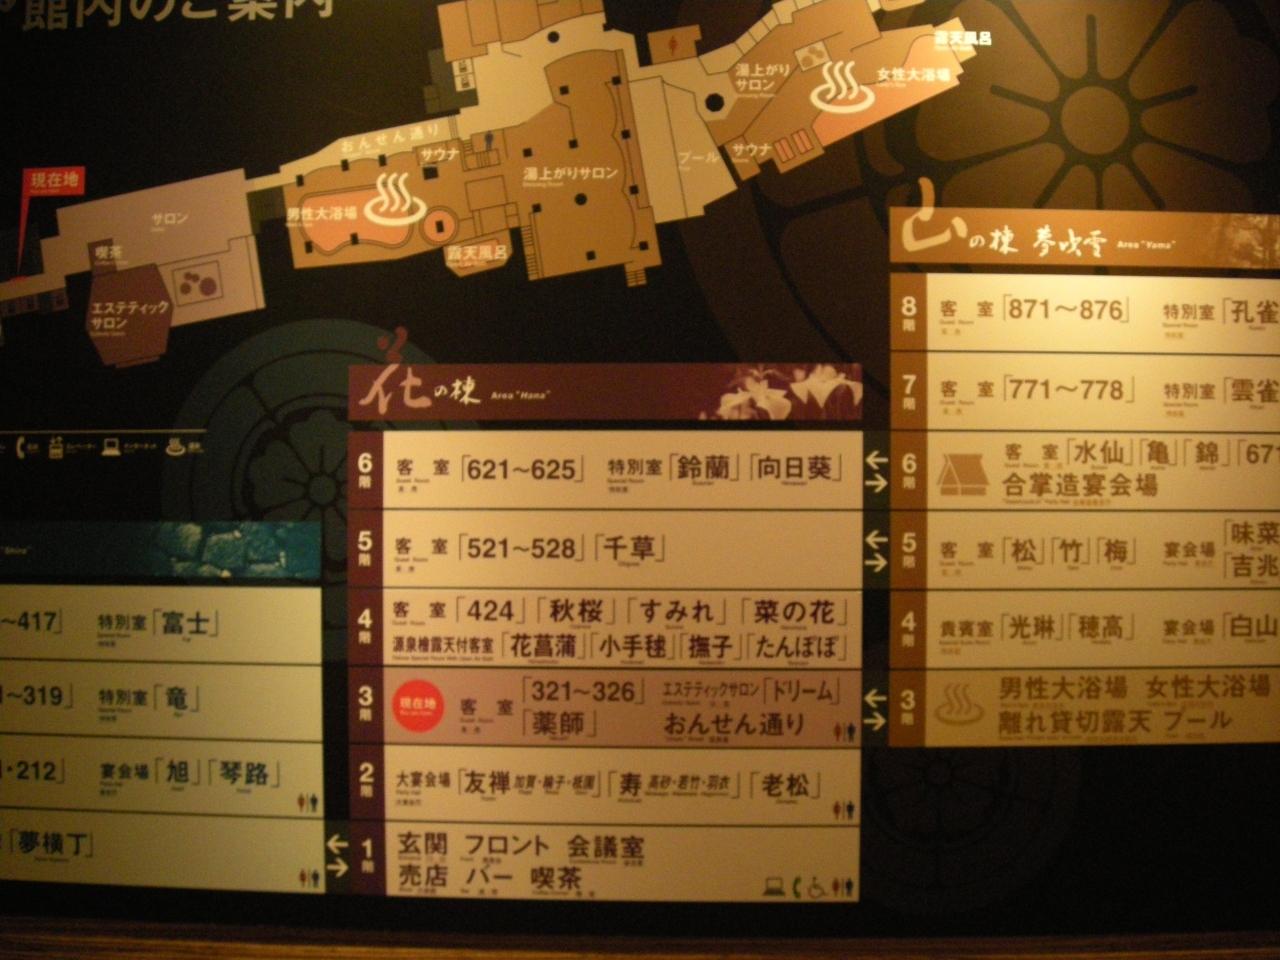 館内のご案内
露天風呂
湯上がり
サロン
女性大浴場
おんせん通り
サウナ
サウナ
プール
現在地
湯上がりサロン
サロン
男性大浴場
喫茶
露天風呂
エステティック
サロン
山の棟 夢吹雪 Area "Yama"
8階 客室「871～876」 特別室「孔雀
7階 客室「771～778」 特別室「雲雀
6階 客室「水仙」「亀」「錦」「671
合掌造宴会場
5階 客室「松」「竹」「梅」 宴会場「味菜
「吉兆
4階 貴賓室「光琳」「穂高」 宴会場「白山
3階 男性大浴場 女性大浴場
離れ貸切露天 プール
花の棟 Area "Hana"
6階 客室「621～625」 特別室「鈴蘭」「向日葵」
5階 客室「521～528」「千草」
4階 客室「424」「秋桜」「すみれ」「菜の花」
源泉檜露天付客室「花菖蒲」「小手毬」「撫子」「たんぽぽ」
3階 現在地 客室「321～326」 エステティックサロン「ドリーム」
「薬師」 おんせん通り
2階 大宴会場「友禅 加賀・綸子・祇園」「寿 高砂・若竹・羽衣」「老松」
1階 玄関 フロント 会議室
売店 バー 喫茶
"Shira"
～417」 特別室「富士」
～319」 特別室「竜」
・212」 宴会場「旭」「琴路」
「夢横丁」